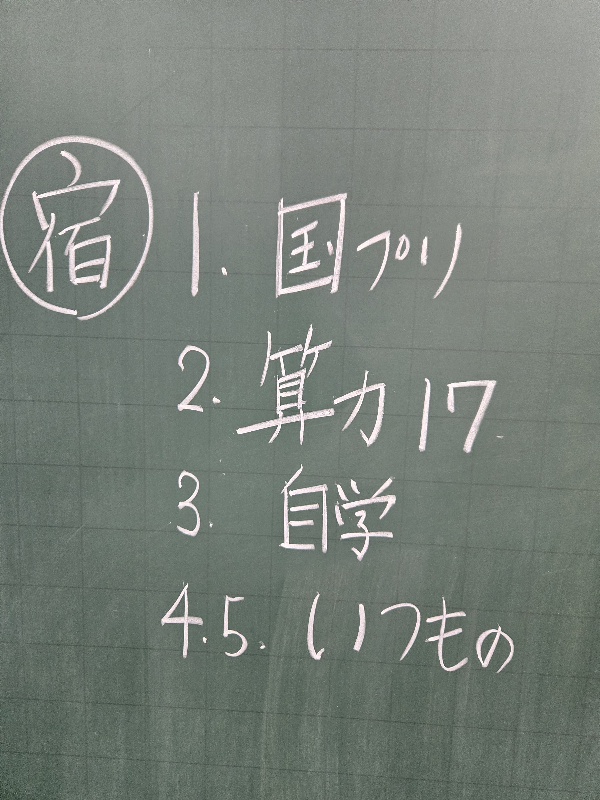 宿
1. 国プリ
2. 算力 17
3. 自学
4.5. いつもの